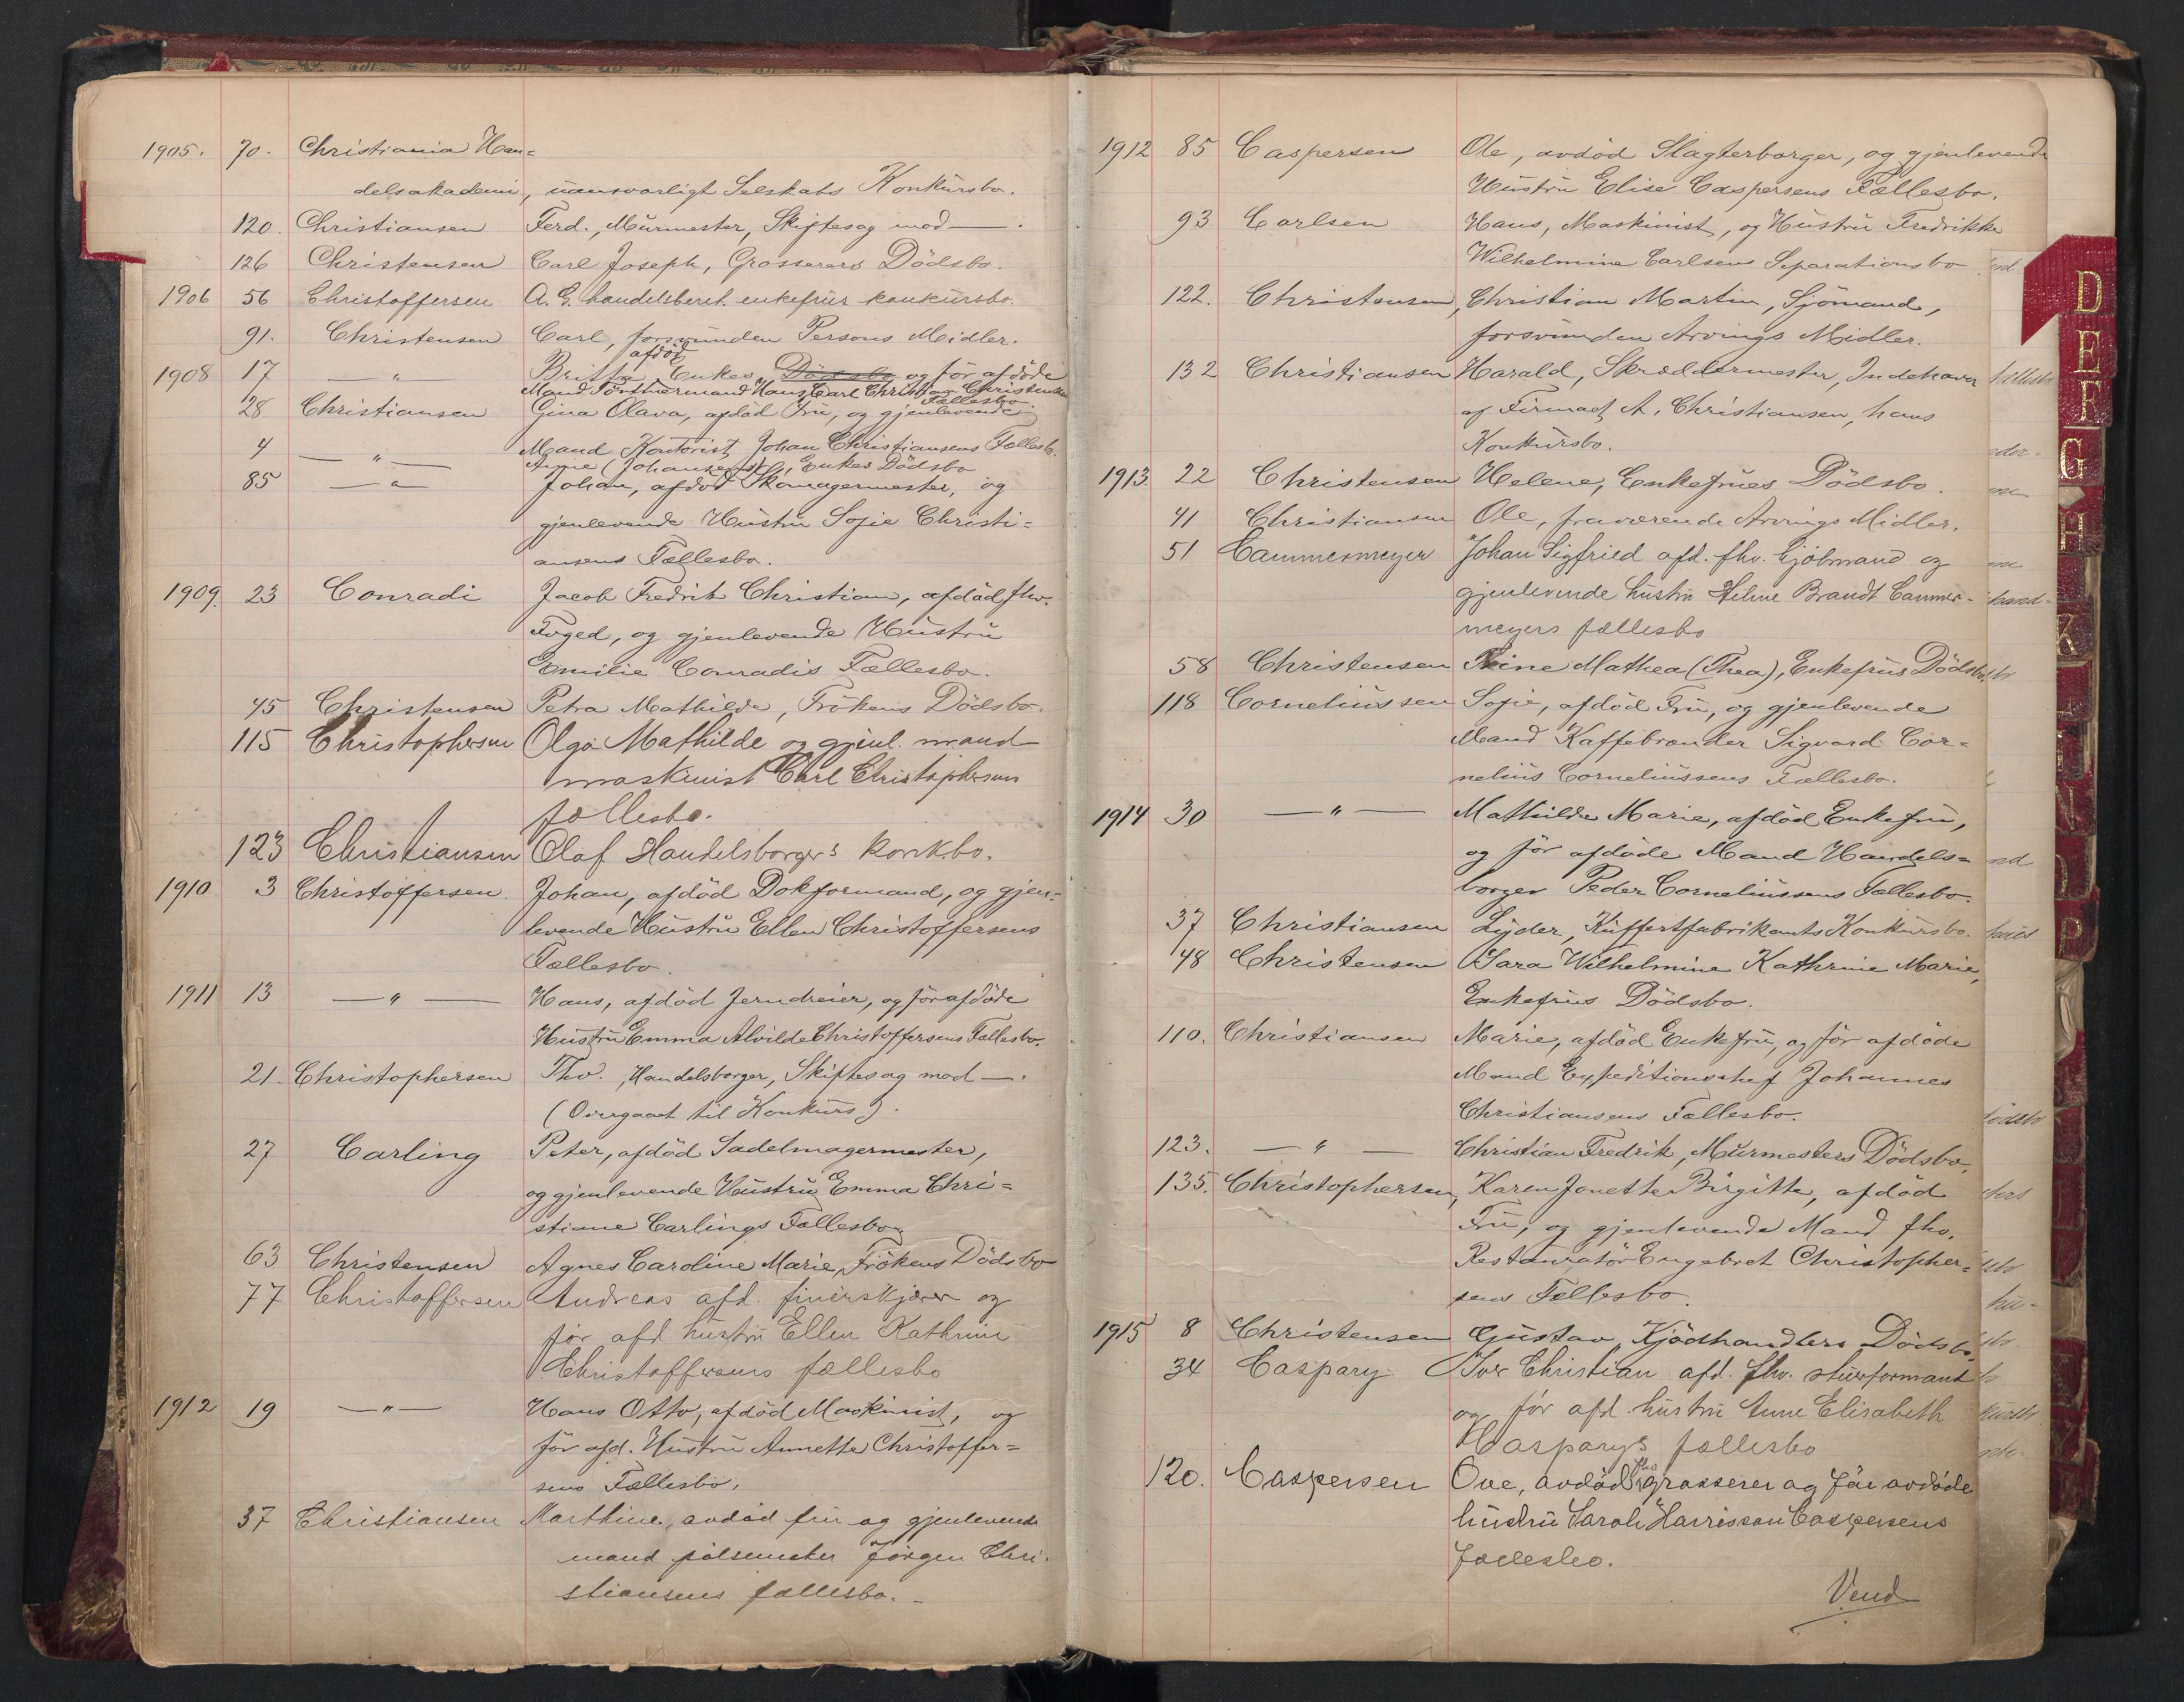 1905. 70. Christiania Han=
delsakademi, uansvarligt Selskabs Konkursbo.
120. Christiansen Ferd., Murmester, Skiftesag mod — .
126 Christensen Carl Joseph, Grosserers Dödsbo.
1906 56 Christoffersen A. G. handelsberet. enkefrues konkursbo.
91. Christensen Carl, forsvunden Persons Midler.
afdöd
1908 17 — " — Britta Enkes Dödsbo og før afdöde
Mand Tömmermand Hans Carl Christian Christensens
Fællesbo
28 Christiansen Gina Olava, afdöd Fru, og gjenlevende
Mand Kontorist Johan Christiansens Fællesbo.
4 — " — Anne (Johansen), Enkes Dödsbo
85 — " — Johan, afdöd Skomagermester, og
gjenlevende Hustru Sofie Christi=
ansens Fællesbo.
1909. 23 Conradi Jacob Fredrik Christian, afdöd fhv.
Foged, og gjenlevende Hustru
Emilie Conradis Fællesbo.
45 Christensen Petra Mathilde, Frökens Dödsbo.
115 Christophersen Olga Mathilde og gjenl. mand
maskinist Carl Christophersens
fællesbo.
123 Christiansen Olaf Handelsborger's konkbo.
1910 3 Christoffersen Johan, afdöd Dokformand, og gjen=
levende Hustru Ellen Christoffersens
Fællesbo.
1911 13 — " — Hans, afdöd Jerndreier, og før afdöde
Hustru Emma Alvilde Christoffersens Fællesbo.
21. Christophersen Thv., Handelsborger, Skiftesag mod — .
(Overgaaet til Konkurs).
27 Carling Peter, afdöd Sadelmagermester,
og gjenlevende Hustru Emma Chri=
stiane Carlings Fællesbo
63 Christensen Agnes Caroline Marie, Frökens Dödsbo
77 Christoffersen Andreas afd. finérskjærer og
før afd. hustru Ellen Kathrine
Christoffersens fællesbo
1912 19 — " — Hans Otto, afdöd Maskinist, og
før afd. Hustru Annette Christoffer=
sens Fællesbo.
37 Christiansen Marthine, avdöd fru og gjenlevende
mand pölsemaker Jörgen Chri-
stiansens fællesbo.
1912 85 Caspersen Ole, avdöd Slagterborger, og gjenlevende
Hustru Elise Caspersens Fællesbo.
93 Carlsen Hans, Maskinist, og Hustru Fredrikke
Wilhelmine Carlsens Separationsbo
122. Christensen, Christian Martin, Sjömand,
forsvunden Arvings Midler.
132 Christiansen Harald, Skræddermester, Indehaver
af Firmaet A. Christiansen, hans
Konkursbo.
1913 22 Christensen Helene, Enkefrues Dödsbo.
41 Christiansen Ole, fraværende Arvings Midler.
51 Cammermeyer Johan Sigfried afd. fhv. kjöbmand og
gjenlevende hustru Helene Brandt Cammer-
meyers fællesbo
58 Christensen Trine Mathea (Thea), Enkefrus Dödsbo.
118 Corneliussen Sofie, afdöd Fru, og gjenlevende
Mand Kaffebrænder Sigvard Cor=
nelius Corneliussens Fællesbo.
1914 30 — " — Mathilde Marie, afdöd Enkefru,
og før afdöde Mand Handels=
borger Peder Corneliussens Fællesbo.
37 Christiansen Lyder, Kuffertfabrikants Konkursbo.
48 Christensen Sara Wilhelmine Kathrine Marie,
Enkefrus Dödsbo.
110. Christiansen Marie, afdöd Enkefru, og før afdöde
Mand Expeditionschef Johannes
Christiansens Fællesbo.
123. — " — Christian Fredrik, Murmesters Dödsbo.
135. Christophersen, Karen Jonette Birgitte, afdöd
Fru, og gjenlevende Mand fhv.
Restauratör Engebret Christopher=
sens Fællesbo.
1915 8 Christensen Gustav, Kjödhandlers Dödsbo.
34 Caspary Iver Christian afd. fhv. stuerformand
og før afd. hustru Anne Elisabeth
Casparys fællesbo
120. Caspersen Ove, avdöd fhv grosserer og før avdöde
hustru Sarah Harrisson Caspersens
fællesbo.
Vend
D
E
F
G
H
K
L
N
O
P